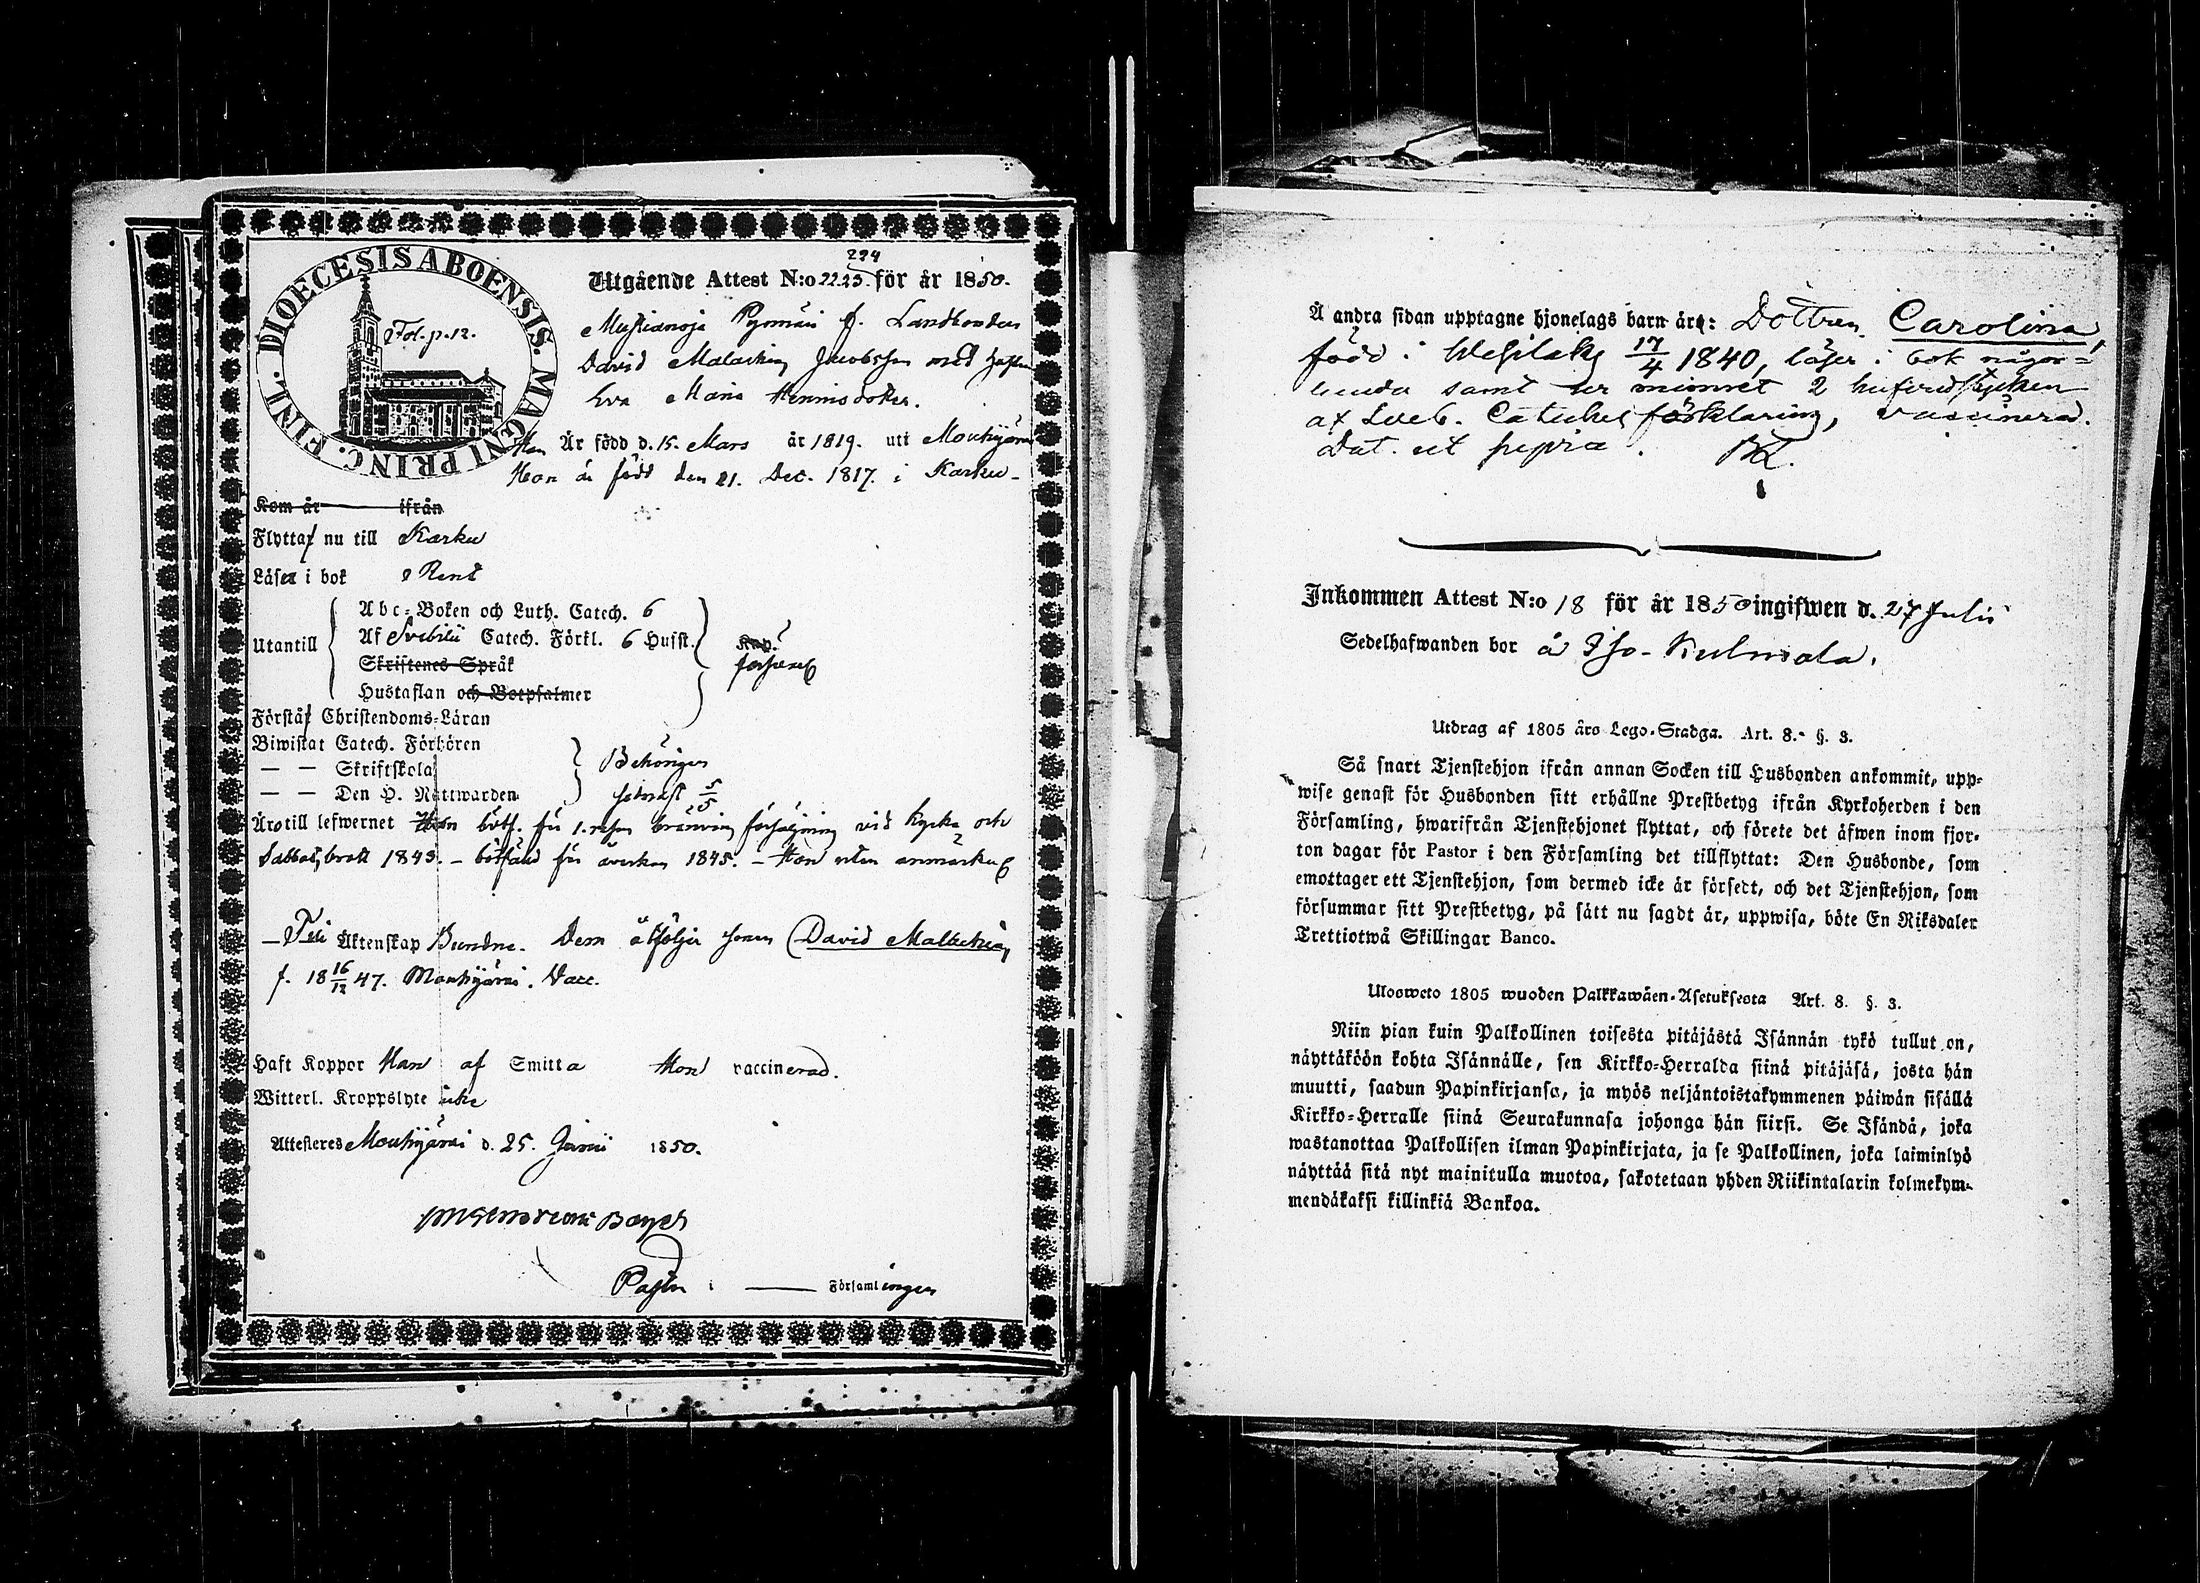 DIOECESIS ABOENSIS. MAGNI PRINC. FINL.
Fol. p. 12.
224
Utgående Attest N:o 22.23. för år 1850.
Mustianoja Pynnäri f. Landbonden
David Malachias Jacobsson med hustru
Eva Maria Henricsdotter.
Han Är född d. 15. Mars år 1819. uti Mouhijärvi
Hon är född den 21. Dec. 1817. i Karku
Kom år ifrån
Flytta nu till Karku
Läser i bok Rent
Utantill
Abc-Boken och Luth. Catech. 6
Af Svebilii Catech. Förkl. 6 Husst.
Skriftenes Språk
Hustaflan och Botpsalmer
försvarl
Förstår Christendoms-Läran
Biwistat Catech. Förhören
— — Skriftskola
— — Den H. Nattwarden
Behörigen
senast 5/5
Äro till lefwernet Han bötf. för 1. resan bränvins försäljning vid kyrka och
Sabbatsbrott 1843. – bötfäld för åverkan 1845. – Hon utan anmärkn
— Till Äktenskap Bundne. Dem åtföljer sonen David Malachias,
f. 18 16/12 47. Mouhijärvi. Vacc.
Haft Koppor Han af Smitta Hon vaccinerad.
Witterl. Kroppslyte icke
Attesteres Mouhijärvi d. 25. Junii 1850.
Pastor i — Församlingen
Å andra sidan upptagne hjonelags barn är: Dottren Carolina,
född i Wesilaks 17/4 1840, läser i bok någor=
lunda samt ur minnet 2 hufvudstycken
af Sveb. Catechis förklaring, vaccinerad.
Dat. ut supra.
Inkommen Attest N:o 18 för år 1850 ingifwen d. 27 Julii
Sedelhafwanden bor å Iso-Kulmala.
Utdrag af 1805 års Lego-Stadga. Art. 8. §. 3.
Så snart Tjenstehjon ifrån annan Socken till Husbonden ankommit, upp-
wise genast för Husbonden sitt erhållne Prestbetyg ifrån Kyrkoherden i den
Församling, hwarifrån Tjenstehjonet flyttat, och förete det äfwen inom fjor-
ton dagar för Pastor i den Församling det tillflyttat: Den Husbonde, som
emottager ett Tjenstehjon, som dermed icke är försedt, och det Tjenstehjon, som
försummar sitt Prestbetyg, på sätt nu sagdt är, uppwisa, böte En Riksdaler
Trettiotwå Skillingar Banco.
Ulosweto 1805 wuoden Palkkawäen-Asetuksesta Art. 8. §. 3.
Niin pian kuin Palkollinen toisesta pitäjästä Isännän tykö tullut on,
näyttäköön kohta Isännälle, sen Kirkko-Herralda siinä pitäjäsä, josta hän
muutti, saadun Papinkirjansa, ja myös neljäntoistakymmenen päiwän sisällä
Kirkko-Herralle siinä Seurakunnasa johonga hän siirsi. Se Isändä, joka
wastanottaa Palkollisen ilman Papinkirjata, ja se Palkollinen, joka laiminlyö
näyttää sitä nyt mainitulla muotoa, sakotetaan yhden Riikintalarin kolmekym-
mendäkaksi killinkiä Bankoa.